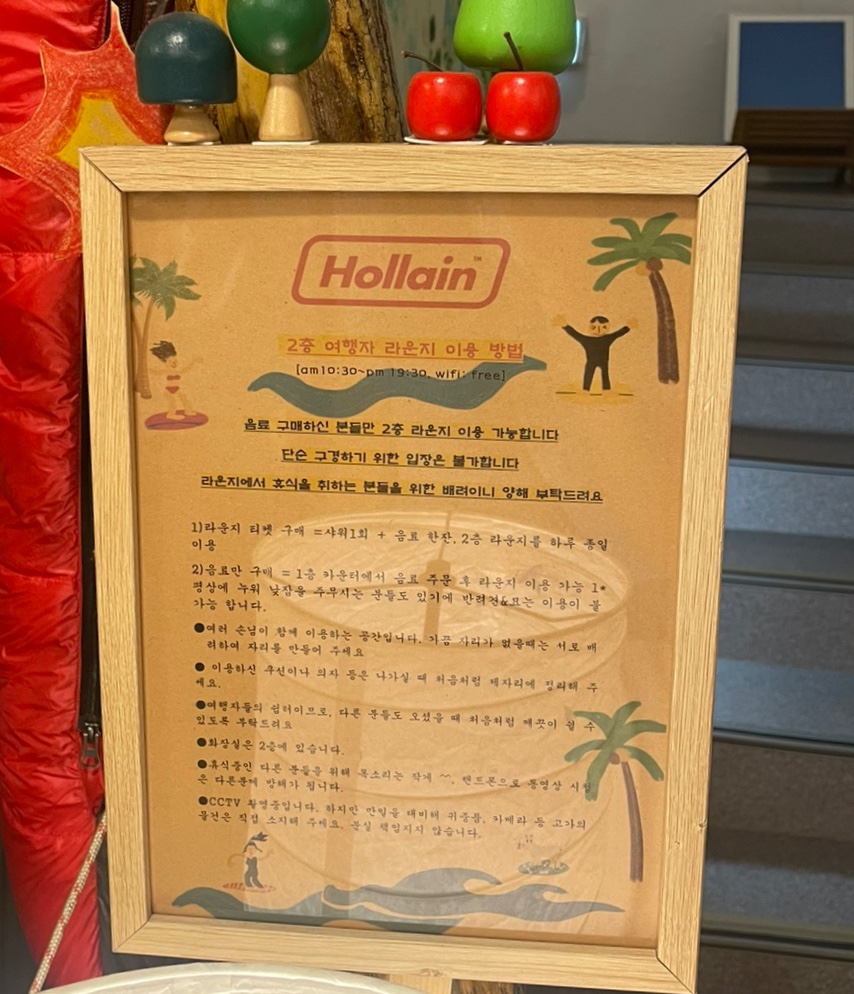 Hollain™
2층 여행자 라운지 이용 방법
[am10:30~pm 19:30, wifi: free]
음료 구매하신 분들만 2층 라운지 이용 가능합니다
단순 구경하기 위한 입장은 불가합니다
라운지에서 휴식을 취하는 분들을 위한 배려이니 양해 부탁드려요
1)라운지 티켓 구매 =샤워1회 + 음료 한잔, 2층 라운지를 하루 종일
이용
2)음료만 구매 = 1층 카운터에서 음료 주문 후 라운지 이용 가능 1*
평상에 누워 낮잠을 주무시는 분들도 있기에 반려견&묘는 이용이 불
가능 합니다.
●여러 손님이 함께 이용하는 공간입니다. 가끔 자리가 없을때는 서로 배
려하여 자리를 만들어 주세요
● 이용하신 쿠션이나 의자 등은 나가실 때 처음처럼 제자리에 정리해 주
세요.
●여행자들의 쉼터이므로, 다른 분들도 오셨을 때 처음처럼 깨끗이 쉴 수
있도록 부탁드려요
●화장실은 2층에 있습니다.
●휴식중인 다른 분들을 위해 목소리는 작게 ^^, 핸드폰으로 동영상 시청
은 다른분께 방해가 됩니다.
●CCTV 촬영중입니다. 하지만 만일을 대비해 귀중품, 카메라 등 고가의
물건은 직접 소지해 주세요. 분실 책임지지 않습니다.